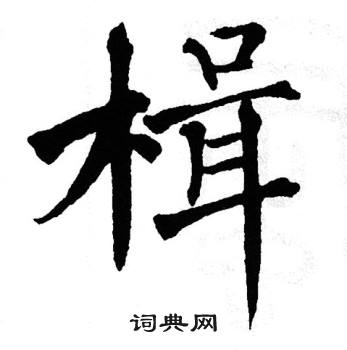 楫
词典网